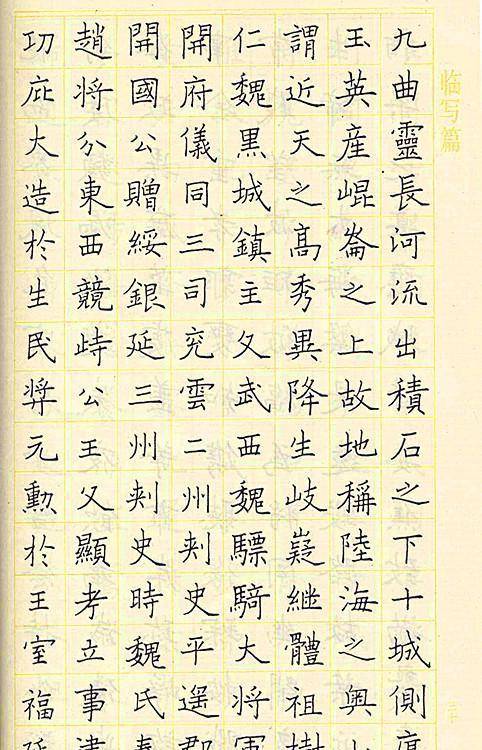 临写篇
九曲靈長河流出積石之下十城側
玉英産崐崙之上故地稱陸海之奥
謂近天之高秀異降生岐嶷継體祖
仁魏黒城鎮主父武西魏驃騎大将軍
開府儀同三司兖雲二州刾史平遥郡
開國公贈綏銀延三州刾史時魏氏
趙将分東西競峙公王父顯考立事
功庇大造於生民奨元勲於王室福